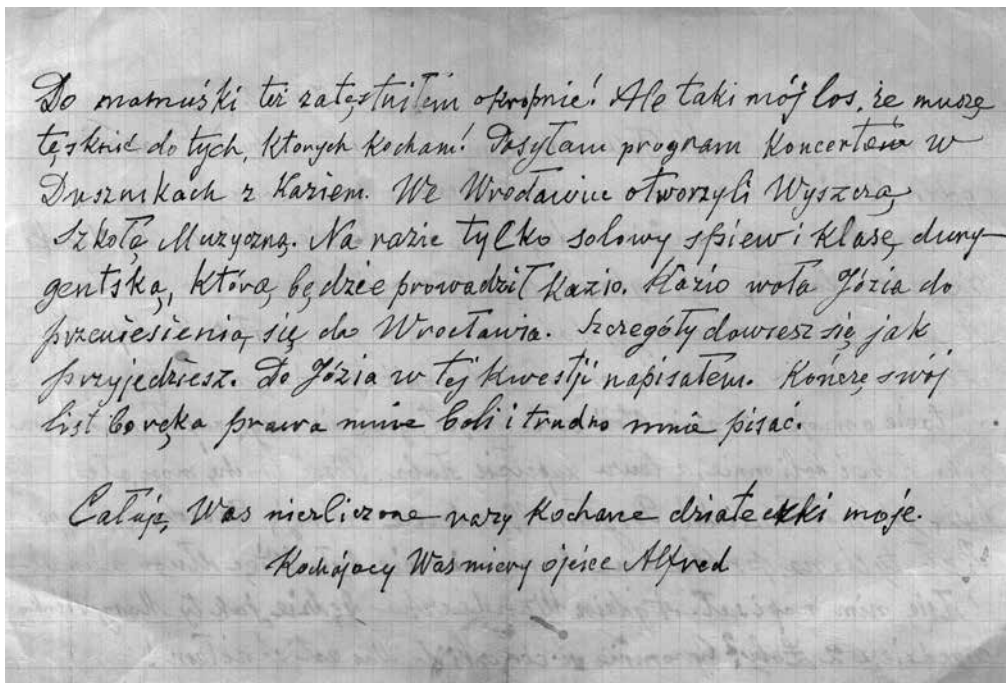 Do mamuśki też zatęskniłem okropnie! Ale taki mój los, że muszę
tęsknić do tych, których kocham! Posyłam program Koncertów w
Dusznikach z Kaziem. We Wrocławiu otworzyli Wyższą
Szkołę Muzyczną. Na razie tylko solowy spiew i klasę dyry-
gentską, którą będzie prowadził Kazio. Kazio woła Józia do
przeniesienia się do Wrocławia. Szczegóły dowiesz się jak
przyjedziesz. Do Józia w tej kwestji napisałem. Kończę swój
list bo ręka prawa mnie boli i trudno mnie pisać.
Całuję Was niezliczone razy Kochane dziateczki moje.
Kochający Was ojciec Alfred